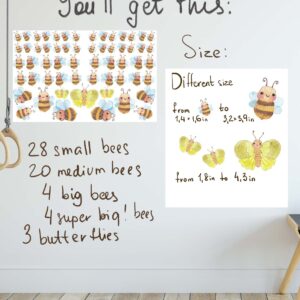 You'll get this:
Size:
Different size
from to
1,4×1,6in 3,2×3,9in
from 1,8in to 4,3in
28 small bees
20 medium bees
4 big bees
4 super big! bees
3 butterflies